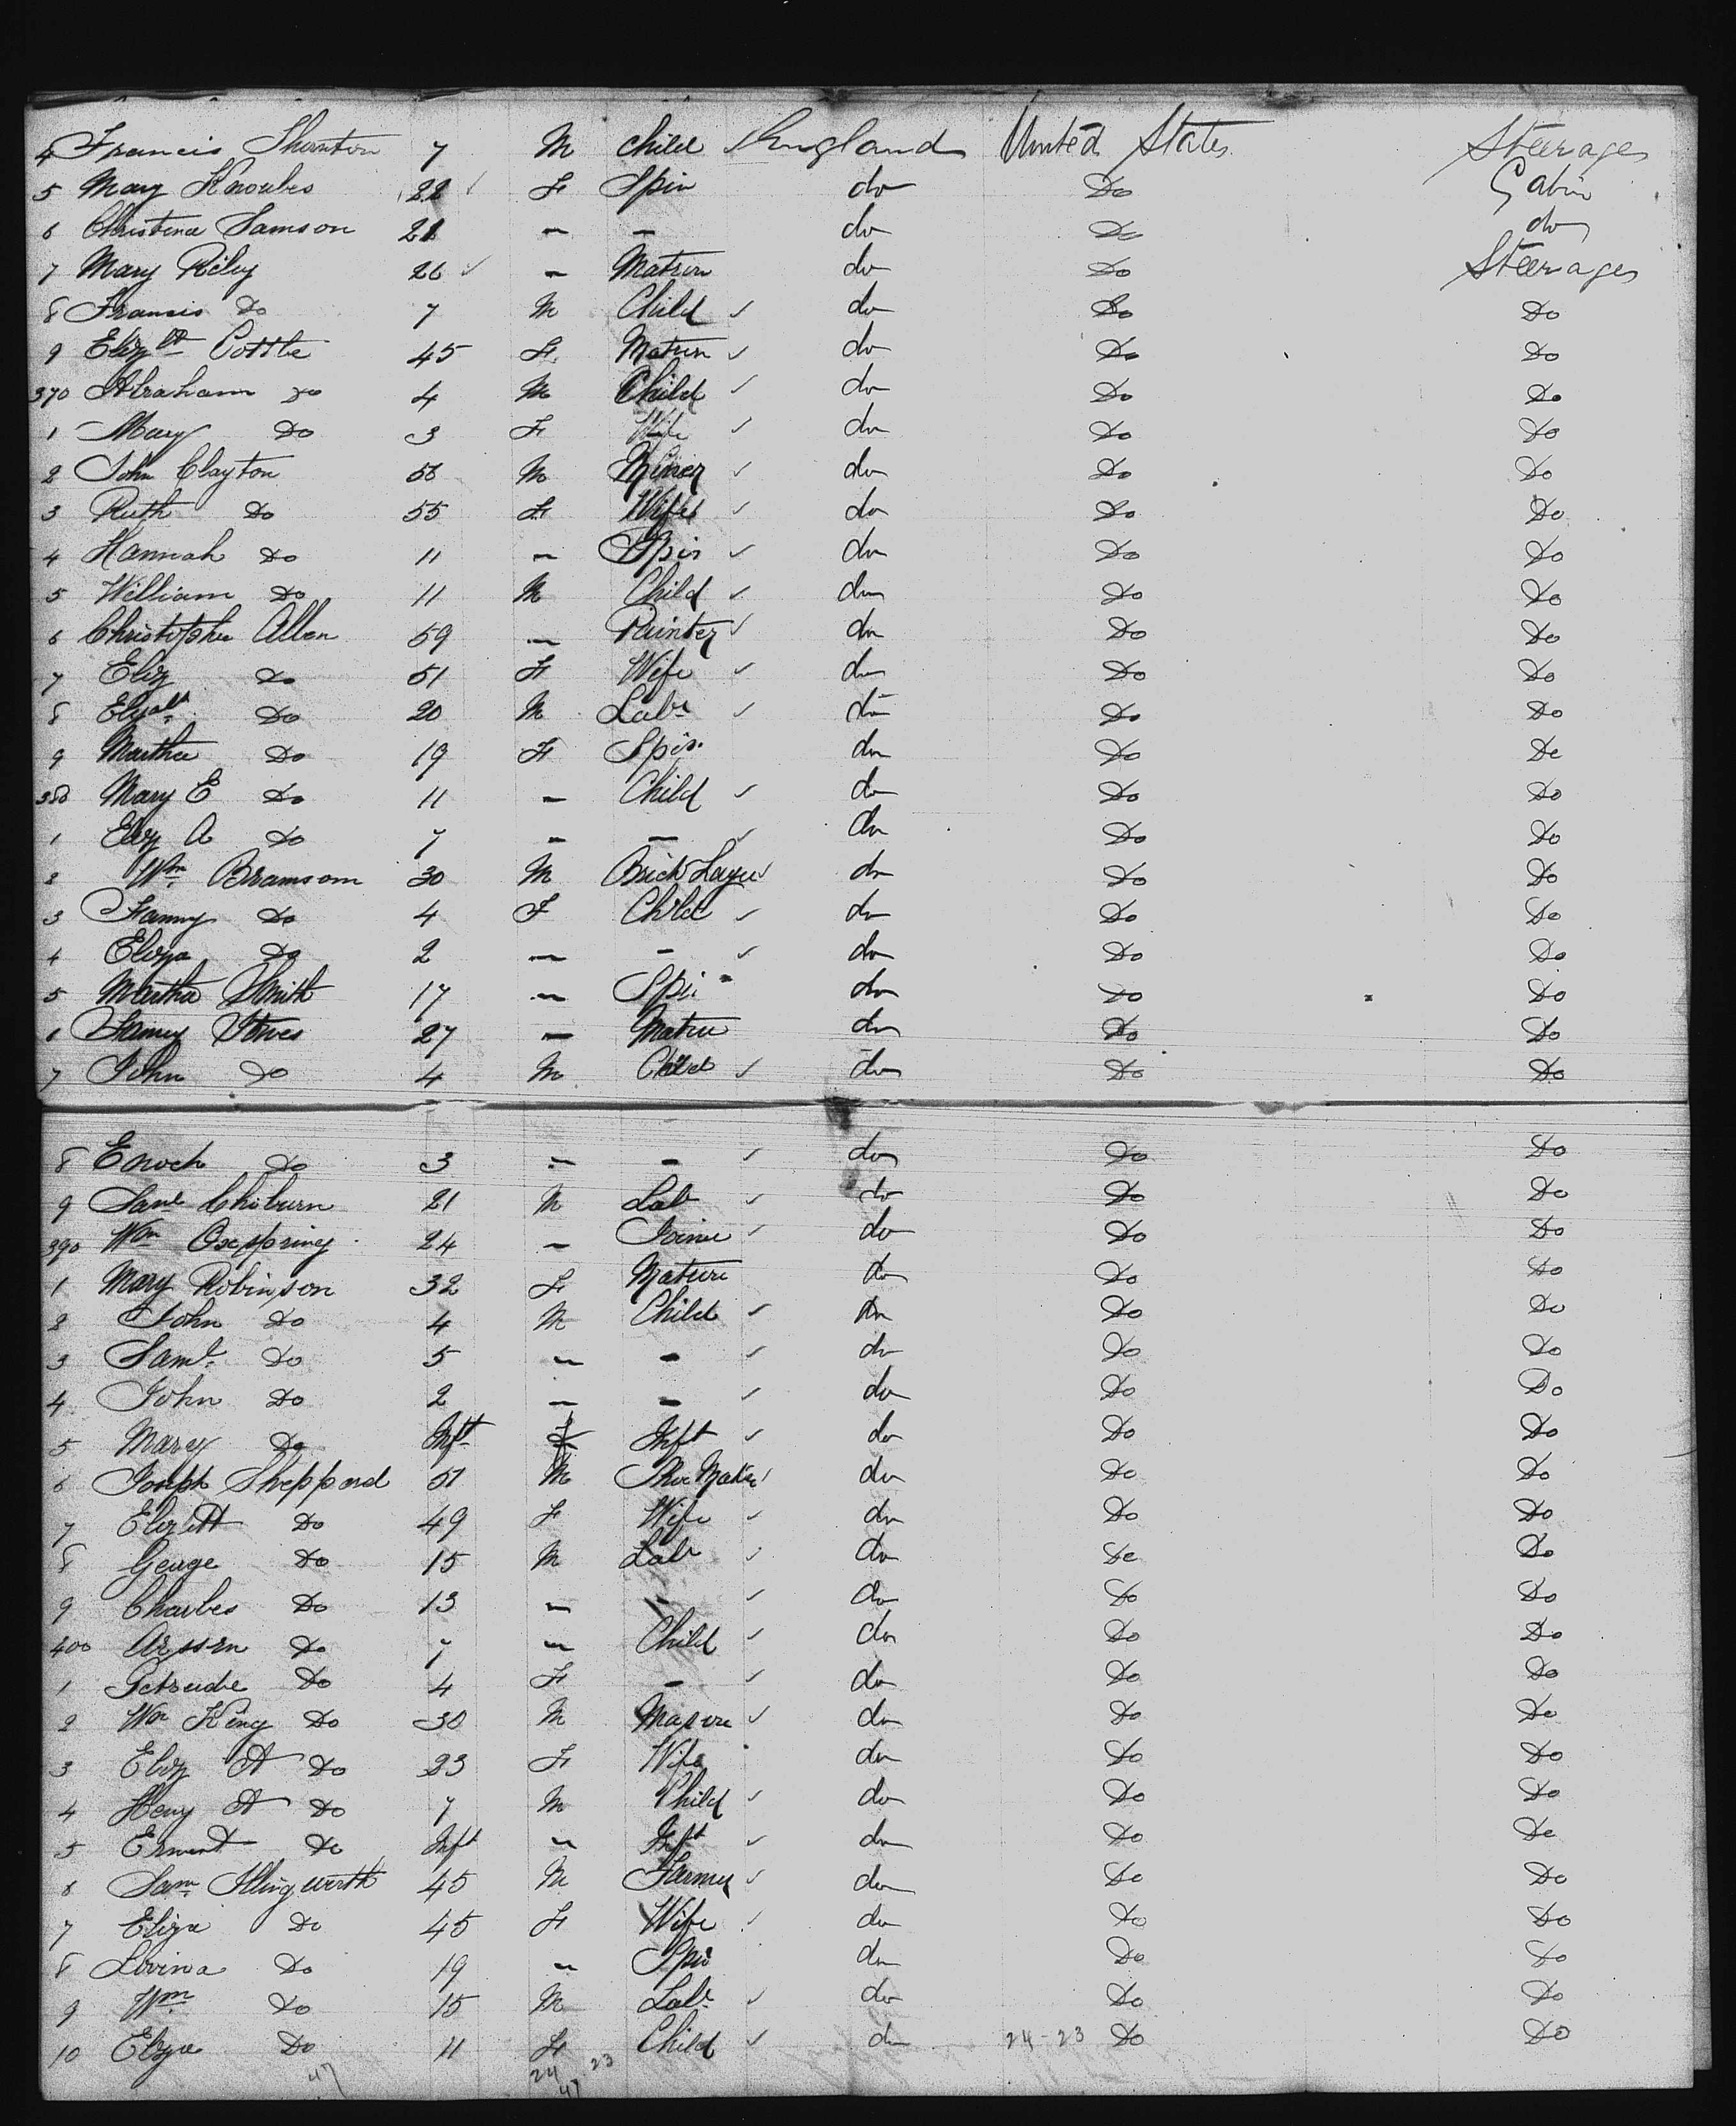 4 Francis Thornton 7 M Child England United States Steerage
5 Mary Knowles 22 F Spin do Do Cabin
6 Christina Samson 21 — — do Do do
7 Mary Riley 26 — Matron do Do Steerage
8 Francis Do 7 M Child do Do Do
9 Elizth Cottle 45 F Matrn do Do Do
370 Abraham Do 4 M Child do Do Do
1 Mary Do 3 F Wife do Do Do
2 John Clayton 58 M Miner do Do Do
3 Ruth Do 55 F Wife do Do Do
4 Hannah Do 11 — Spin do Do Do
5 William Do 11 M Child do Do Do
6 Christopher Allen 59 — Painter do Do Do
7 Eliz Do 51 F Wife do Do Do
8 Do 20 M Labr do Do Do
9 Martha Do 19 F Spin do Do Do
380 Mary E Do 11 — Child do Do Do
1 Eliz A Do 7 — — do Do Do
2 Wm Bramsom 30 M Brick Layer do Do Do
3 Fanny Do 4 F Child do Do Do
4 Eliza Do 2 — — do Do Do
5 Martha Smith 17 — Spin do Do Do
6 Fanny 27 — Matrn do Do Do
7 John Do 4 M Child do Do Do
8 Enoch Do 3 — — do Do Do
9 Saml 21 M Lab do Do Do
390 Wm Oxspring 24 — Joiner do Do Do
1 Mary Robinson 32 F Matrn do Do Do
2 John Do 4 M Child do Do Do
3 Saml Do 5 — — do Do Do
4 John Do 2 — — do Do Do
5 Mary Do Inft F Inft do Do Do
6 Joseph Sheppard 51 M Shoe Maker do Do Do
7 Elizth Do 49 F Wife do Do Do
8 George Do 15 M Labr do Do Do
9 Charles Do 13 — — do Do Do
400 Do 7 — Child do Do Do
1 Do 4 F — do Do Do
2 Wm King Do 30 M Mason do Do Do
3 Eliz A Do 23 F Wife do Do Do
4 Heny A Do 7 M Child do Do Do
5 Ernest Do Inft — Inft do Do Do
6 Sam Illingworth 45 M Farmer do Do Do
7 Eliza Do 45 F Wife do Do Do
8 Lovina Do 19 — Spin do Do Do
9 Wm Do 15 M Labr do Do Do
10 Eliza Do 11 F Child do 24-23 Do Do
47 24 23
47